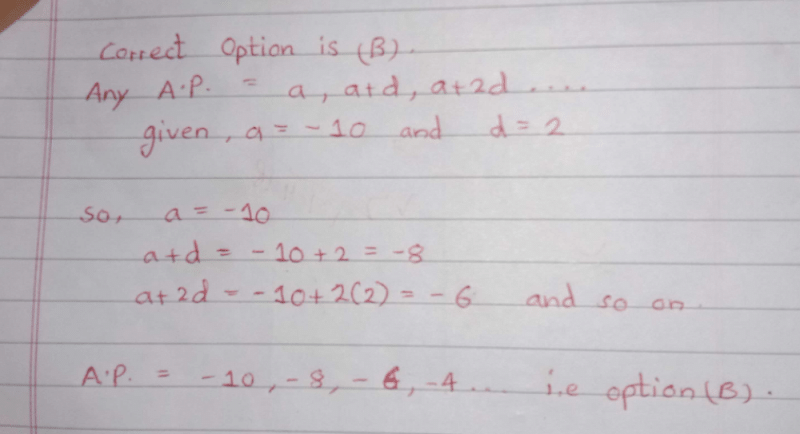 Correct Option is (B).
Any A.P. = a, a+d, a+2d ....
given, a = -10 and d = 2
so, a = -10
a+d = -10+2 = -8
a+2d = -10+2(2) = -6 and so on.
A.P. = -10, -8, -6, -4 ... i.e option (B).